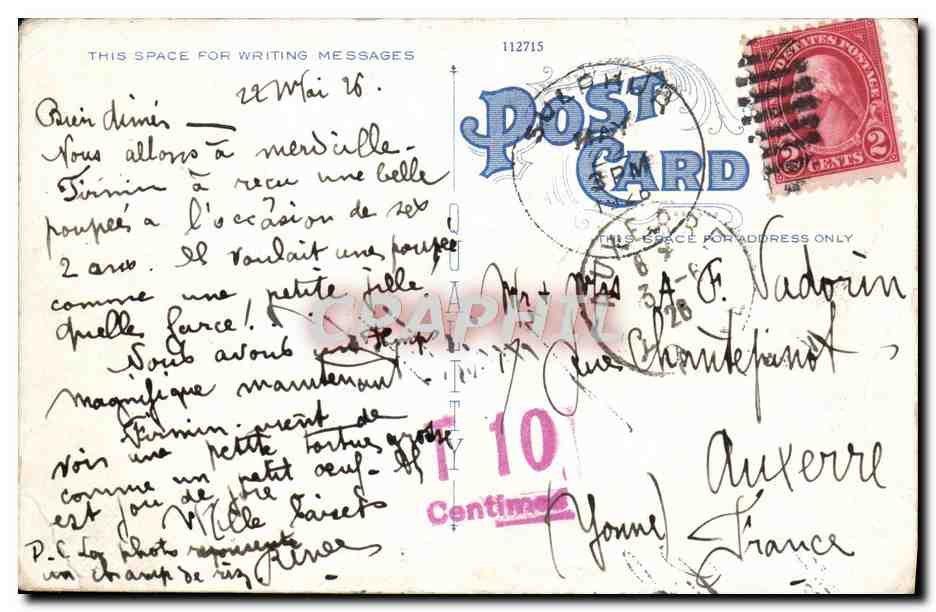 THIS SPACE FOR WRITING MESSAGES
112715
POST CARD
THIS SPACE FOR ADDRESS ONLY
UNITED STATES POSTAGE
2 CENTS 2
MAY
3 PM
22 Mai 26.
Bien aimés —
Nous allons à merveille -
Firmin à reçu une belle
poupée à l'occasion de ses
2 ans. Il voulait une poupée
comme une petite fille,
quelles farce!
Nous avons un temps
magnifique maintenant
Firmin vient de
voir une petite tortue grosse
comme un petit oeuf - Il
est fou de joie
Mille baisers
Renée
P.S. La photo represente
un champ de riz
Mr + Mrs A. F. Vadorin
rue Chantepinot
Auxerre
(Yonne)
France
T 10
Centimes
QUALITY
CRAPHIL